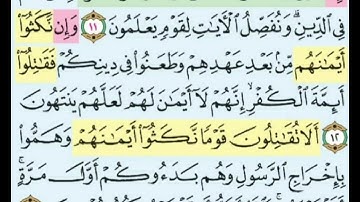 فِي ٱلدِّينِ ۗ وَنُفَصِّلُ ٱلْأَيَٰتِ لِقَوْمٍ يَعْلَمُونَ ١١ وَإِن نَّكَثُوٓا۟
أَيْمَٰنَهُم مِّنۢ بَعْدِ عَهْدِهِمْ وَطَعَنُوا۟ فِي دِينِكُمْ فَقَٰتِلُوٓا۟
أَئِمَّةَ ٱلْكُفْرِ ۙ إِنَّهُمْ لَآ أَيْمَٰنَ لَهُمْ لَعَلَّهُمْ يَنتَهُونَ
١٢ أَلَا تُقَٰتِلُونَ قَوْمًا نَّكَثُوٓا۟ أَيْمَٰنَهُمْ وَهَمُّوا۟
بِإِخْرَاجِ ٱلرَّسُولِ وَهُم بَدَءُوكُمْ أَوَّلَ مَرَّةٍ ۚ